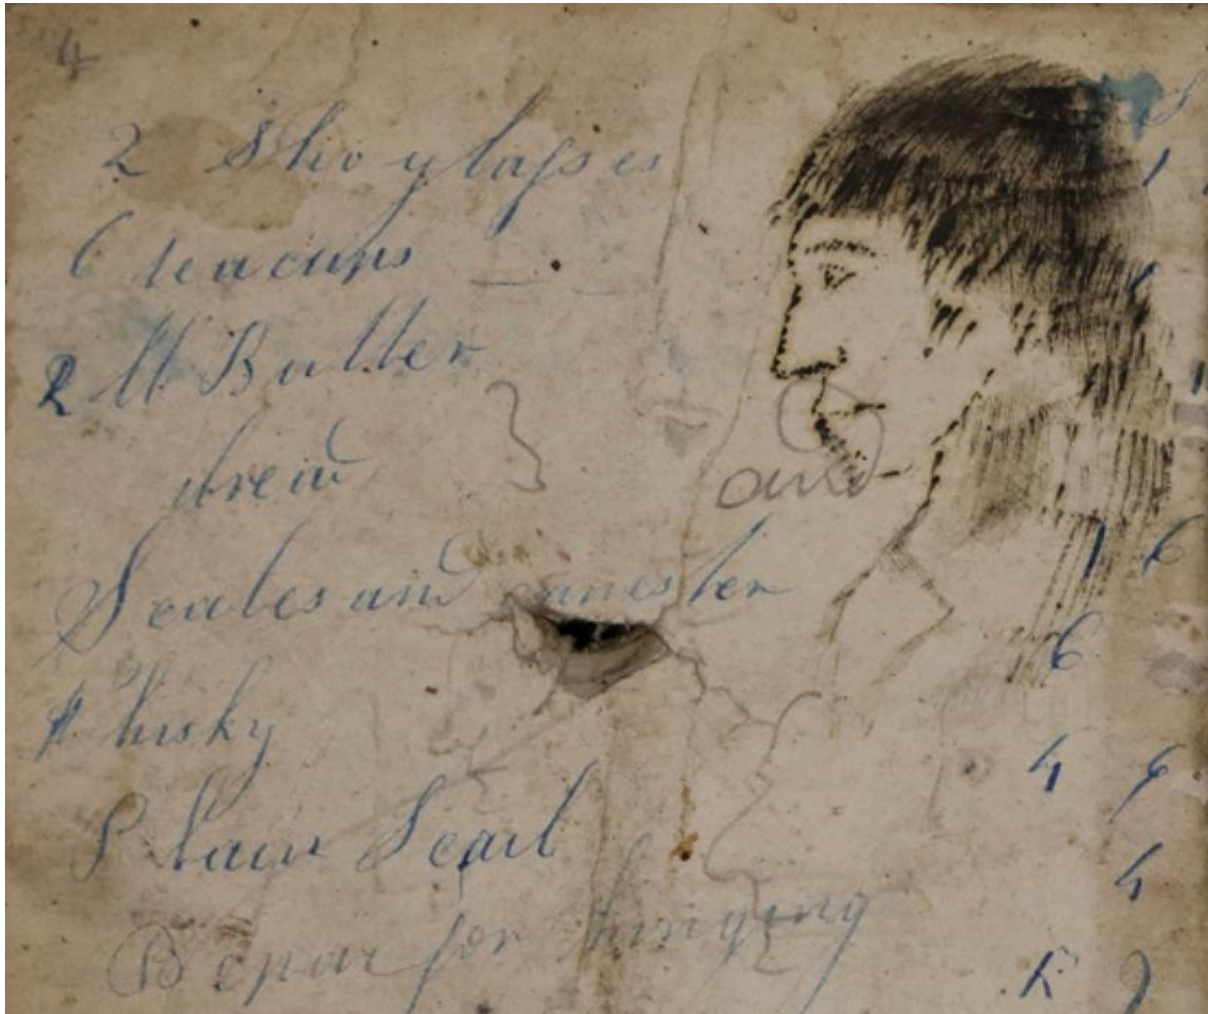 4
2 Sho glasses 1
6 teacups
2 lb Butter 1
bread and
Scales and canester 1 6
6
Whisky 4 6
Plain Seail 4
for hinging 5 9